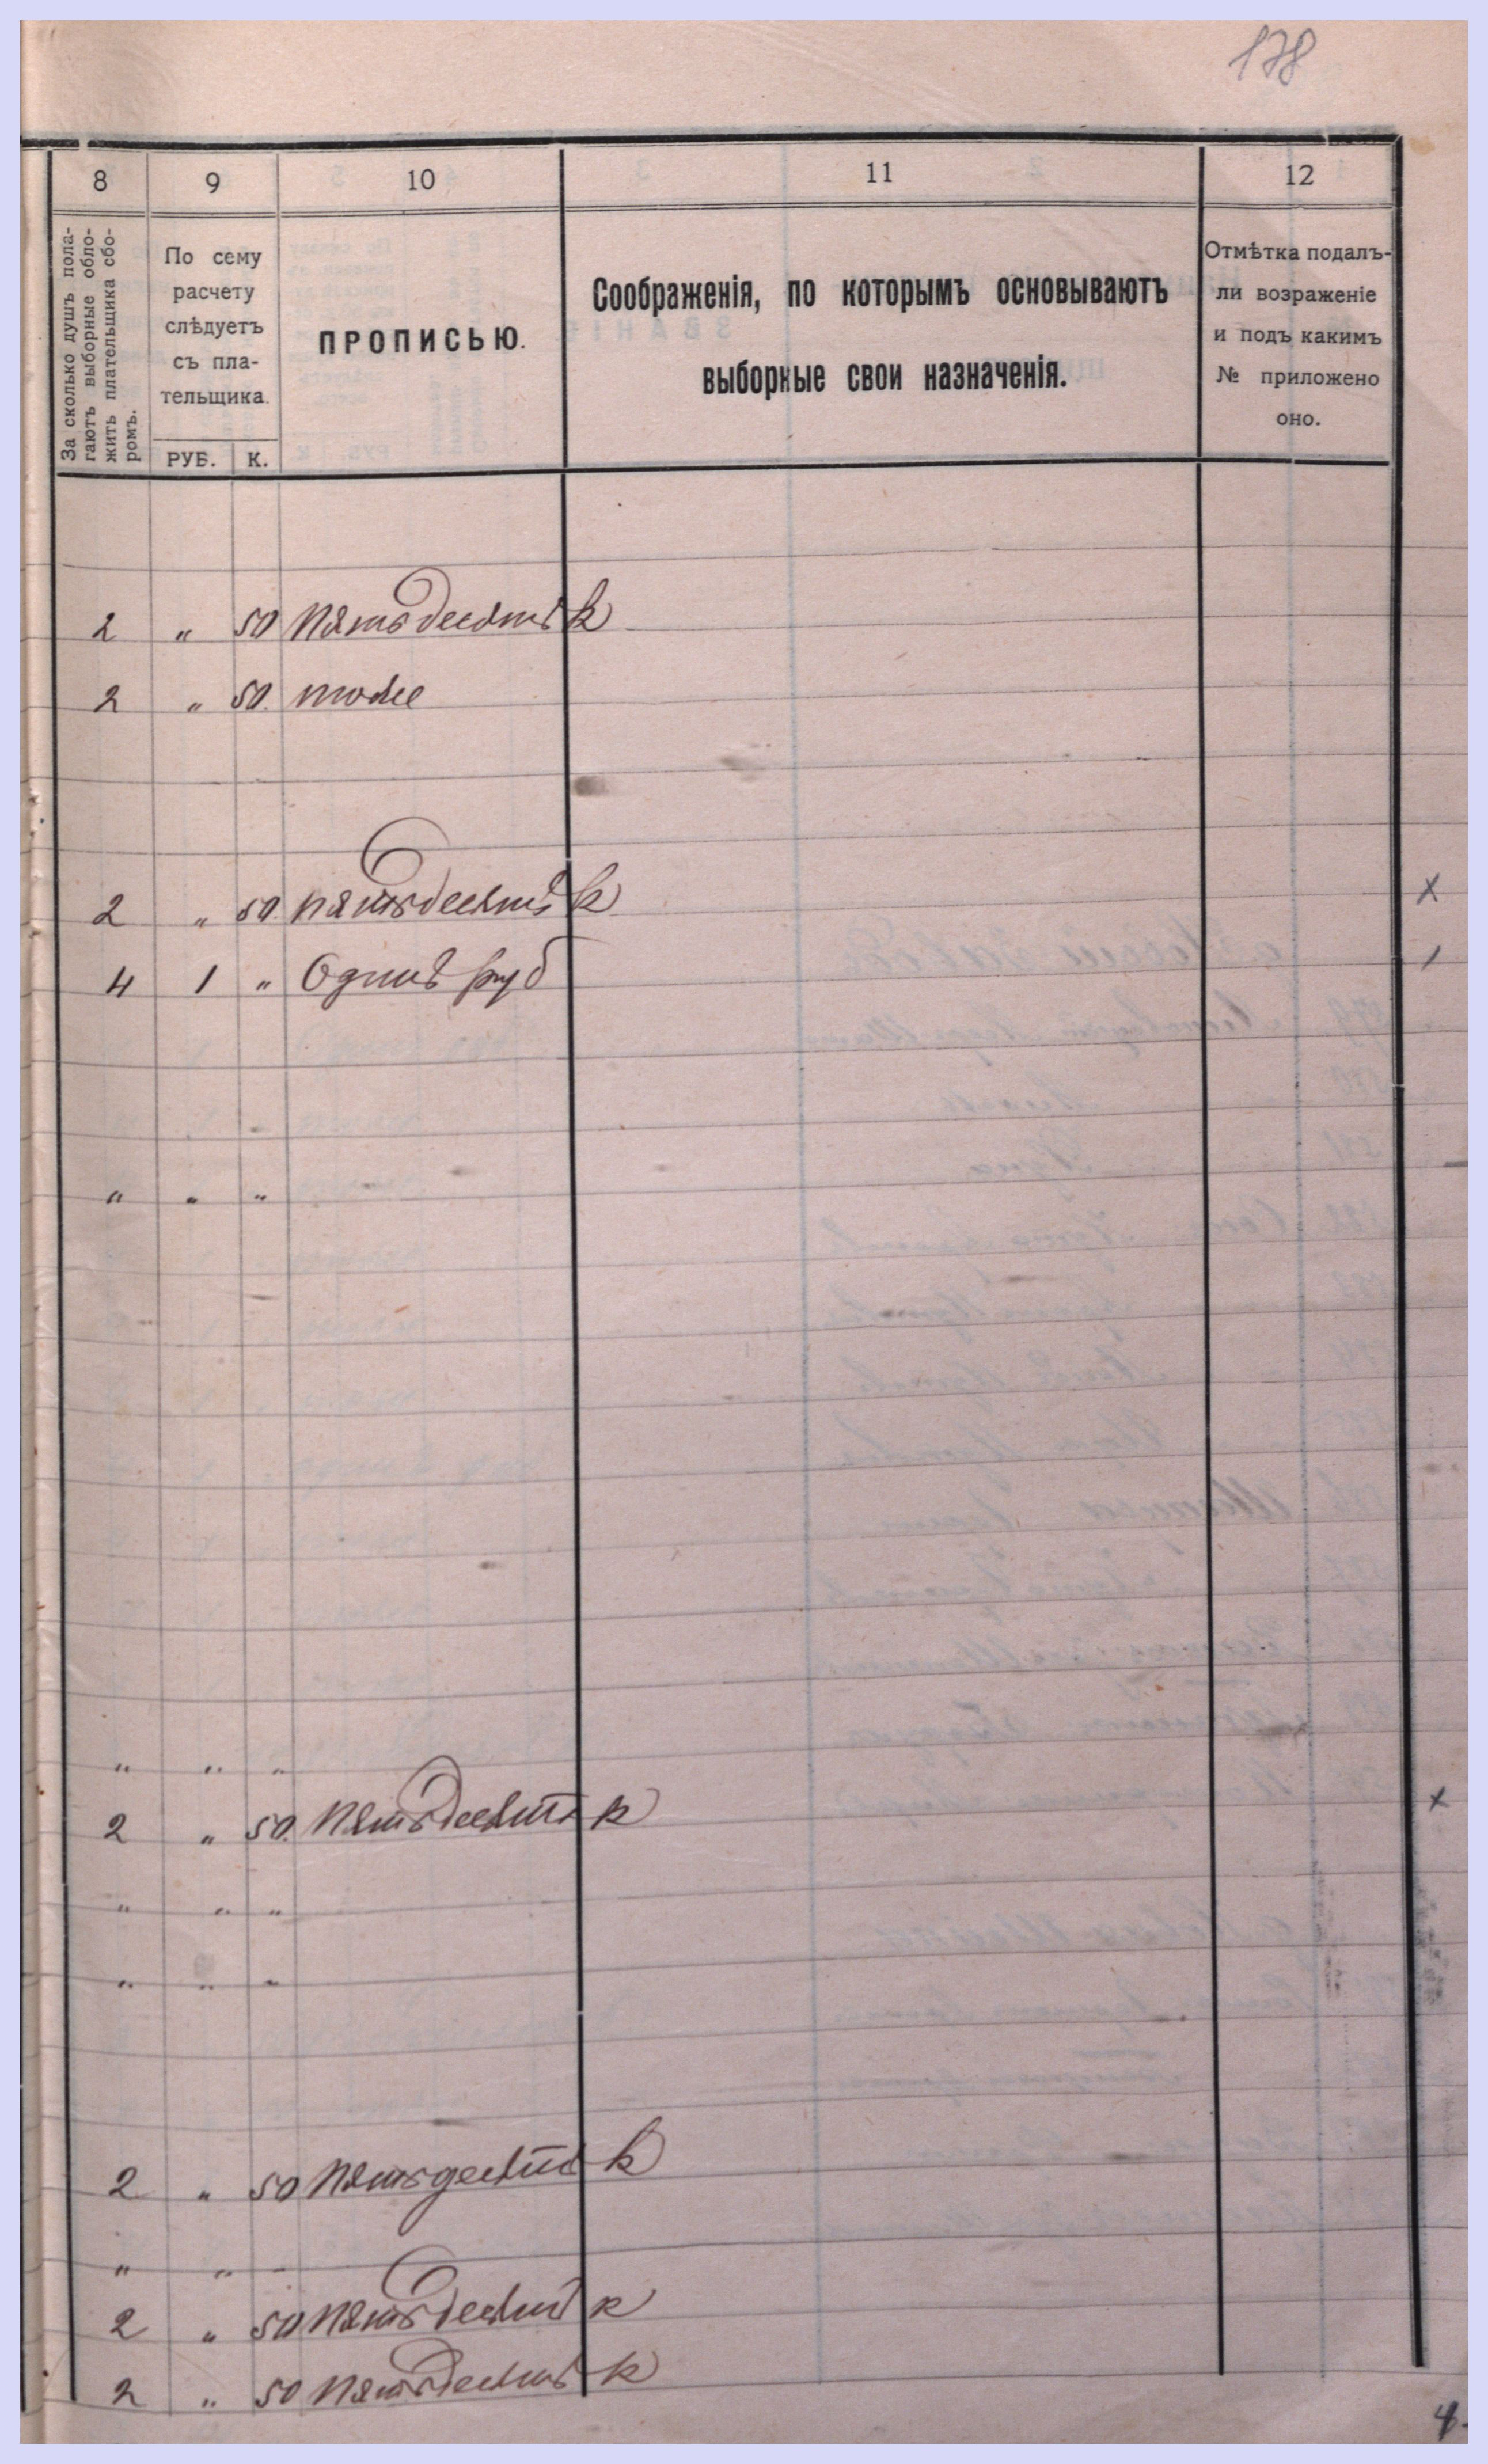 178
8 9 10 11 12
За сколько душъ пола-
гаютъ выборные обло-
жить плательщика сбо-
ромъ.
По сему
расчету
слѣдуетъ
съ пла-
тельщика.
РУБ. К.
ПРОПИСЬЮ.
Соображенія, по которымъ основываютъ
выборные свои назначенія.
Отмѣтка подалъ-
ли возраженіе
и подъ какимъ
№ приложено
оно.
2 " 50 Пятьдесятъ к
2 " 50. тоже
2 " 50. пятьдесятъ к
4 1 " Одинъ руб
" " "
" " "
2 " 50. Пятьдесятъ к
" " "
" " "
2 " 50 Пятьдесятъ к
" " "
2 " 50 Пятьдесятъ к
2 " 50 Пятьдесятъ к